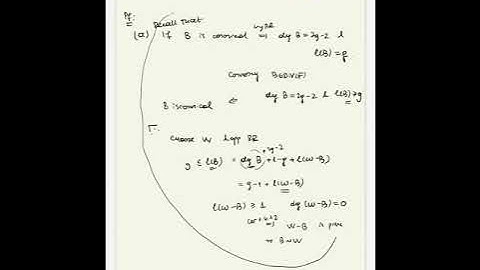 Pf: Recall that
by RR
(a) If B is canonical ⇒ deg B = 2g-2 &
l(B) = g
Conversely B∈Div(F)
B is canonical ⇐ deg B = 2g-2 & l(B) ≥ g
choose W & app RR
2g-2
g ≤ l(B) = deg B + 1-g + l(W-B)
= g-1 + l(W-B)
l(W-B) ≥ 1 deg (W-B) = 0
⇒ W-B is princ
⇒ B~W